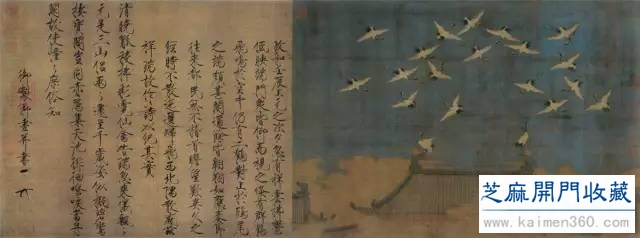 政和壬辰上元之次夕忽有祥雲拂鬱
低映端門衆皆仰而視之倏有群鶴
飛鳴於空中仍有二鶴對止於鴟尾
之端頗甚閑適餘皆翱翔如應奏節
往來都民無不稽首瞻望歎異久之
經時不散迤邐歸飛西北隅散感茲
祥瑞故作詩以紀其實
清曉觚稜拂彩霓仙禽告瑞忽來儀飄飄
元是三山侶兩兩還呈千歲姿似擬碧鸞
棲寶閣豈同赤鴈集天池徘徊嘹唳當丹
闕故使憧憧庶俗知
御製御畫并書
芝麻開門收藏
www.kaimen360.com/